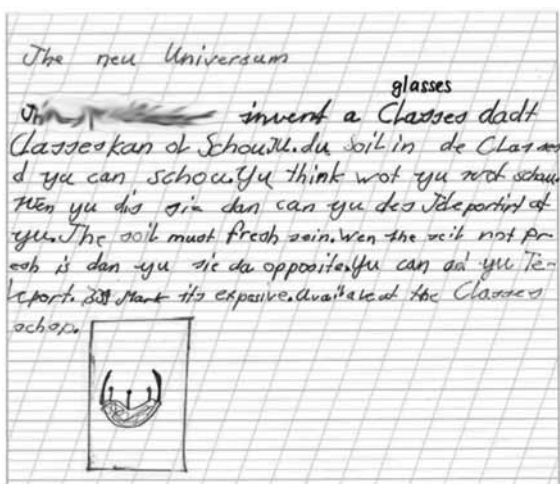 The neu Universum
glasses
invent a Classes dadt
Classes kan ol Schou. du soil in de Classes
d yu can schou. Yu think wot yu wot schau.
Wen yu dis sie dan can yu des Teleportirt at
yu. The soil must fresh sein. Wen the seil not fr
esh is dan yu sie da opposite. Yu can od yu Te-
leport. Mark its expasive. Availabe at the Classes
schop.